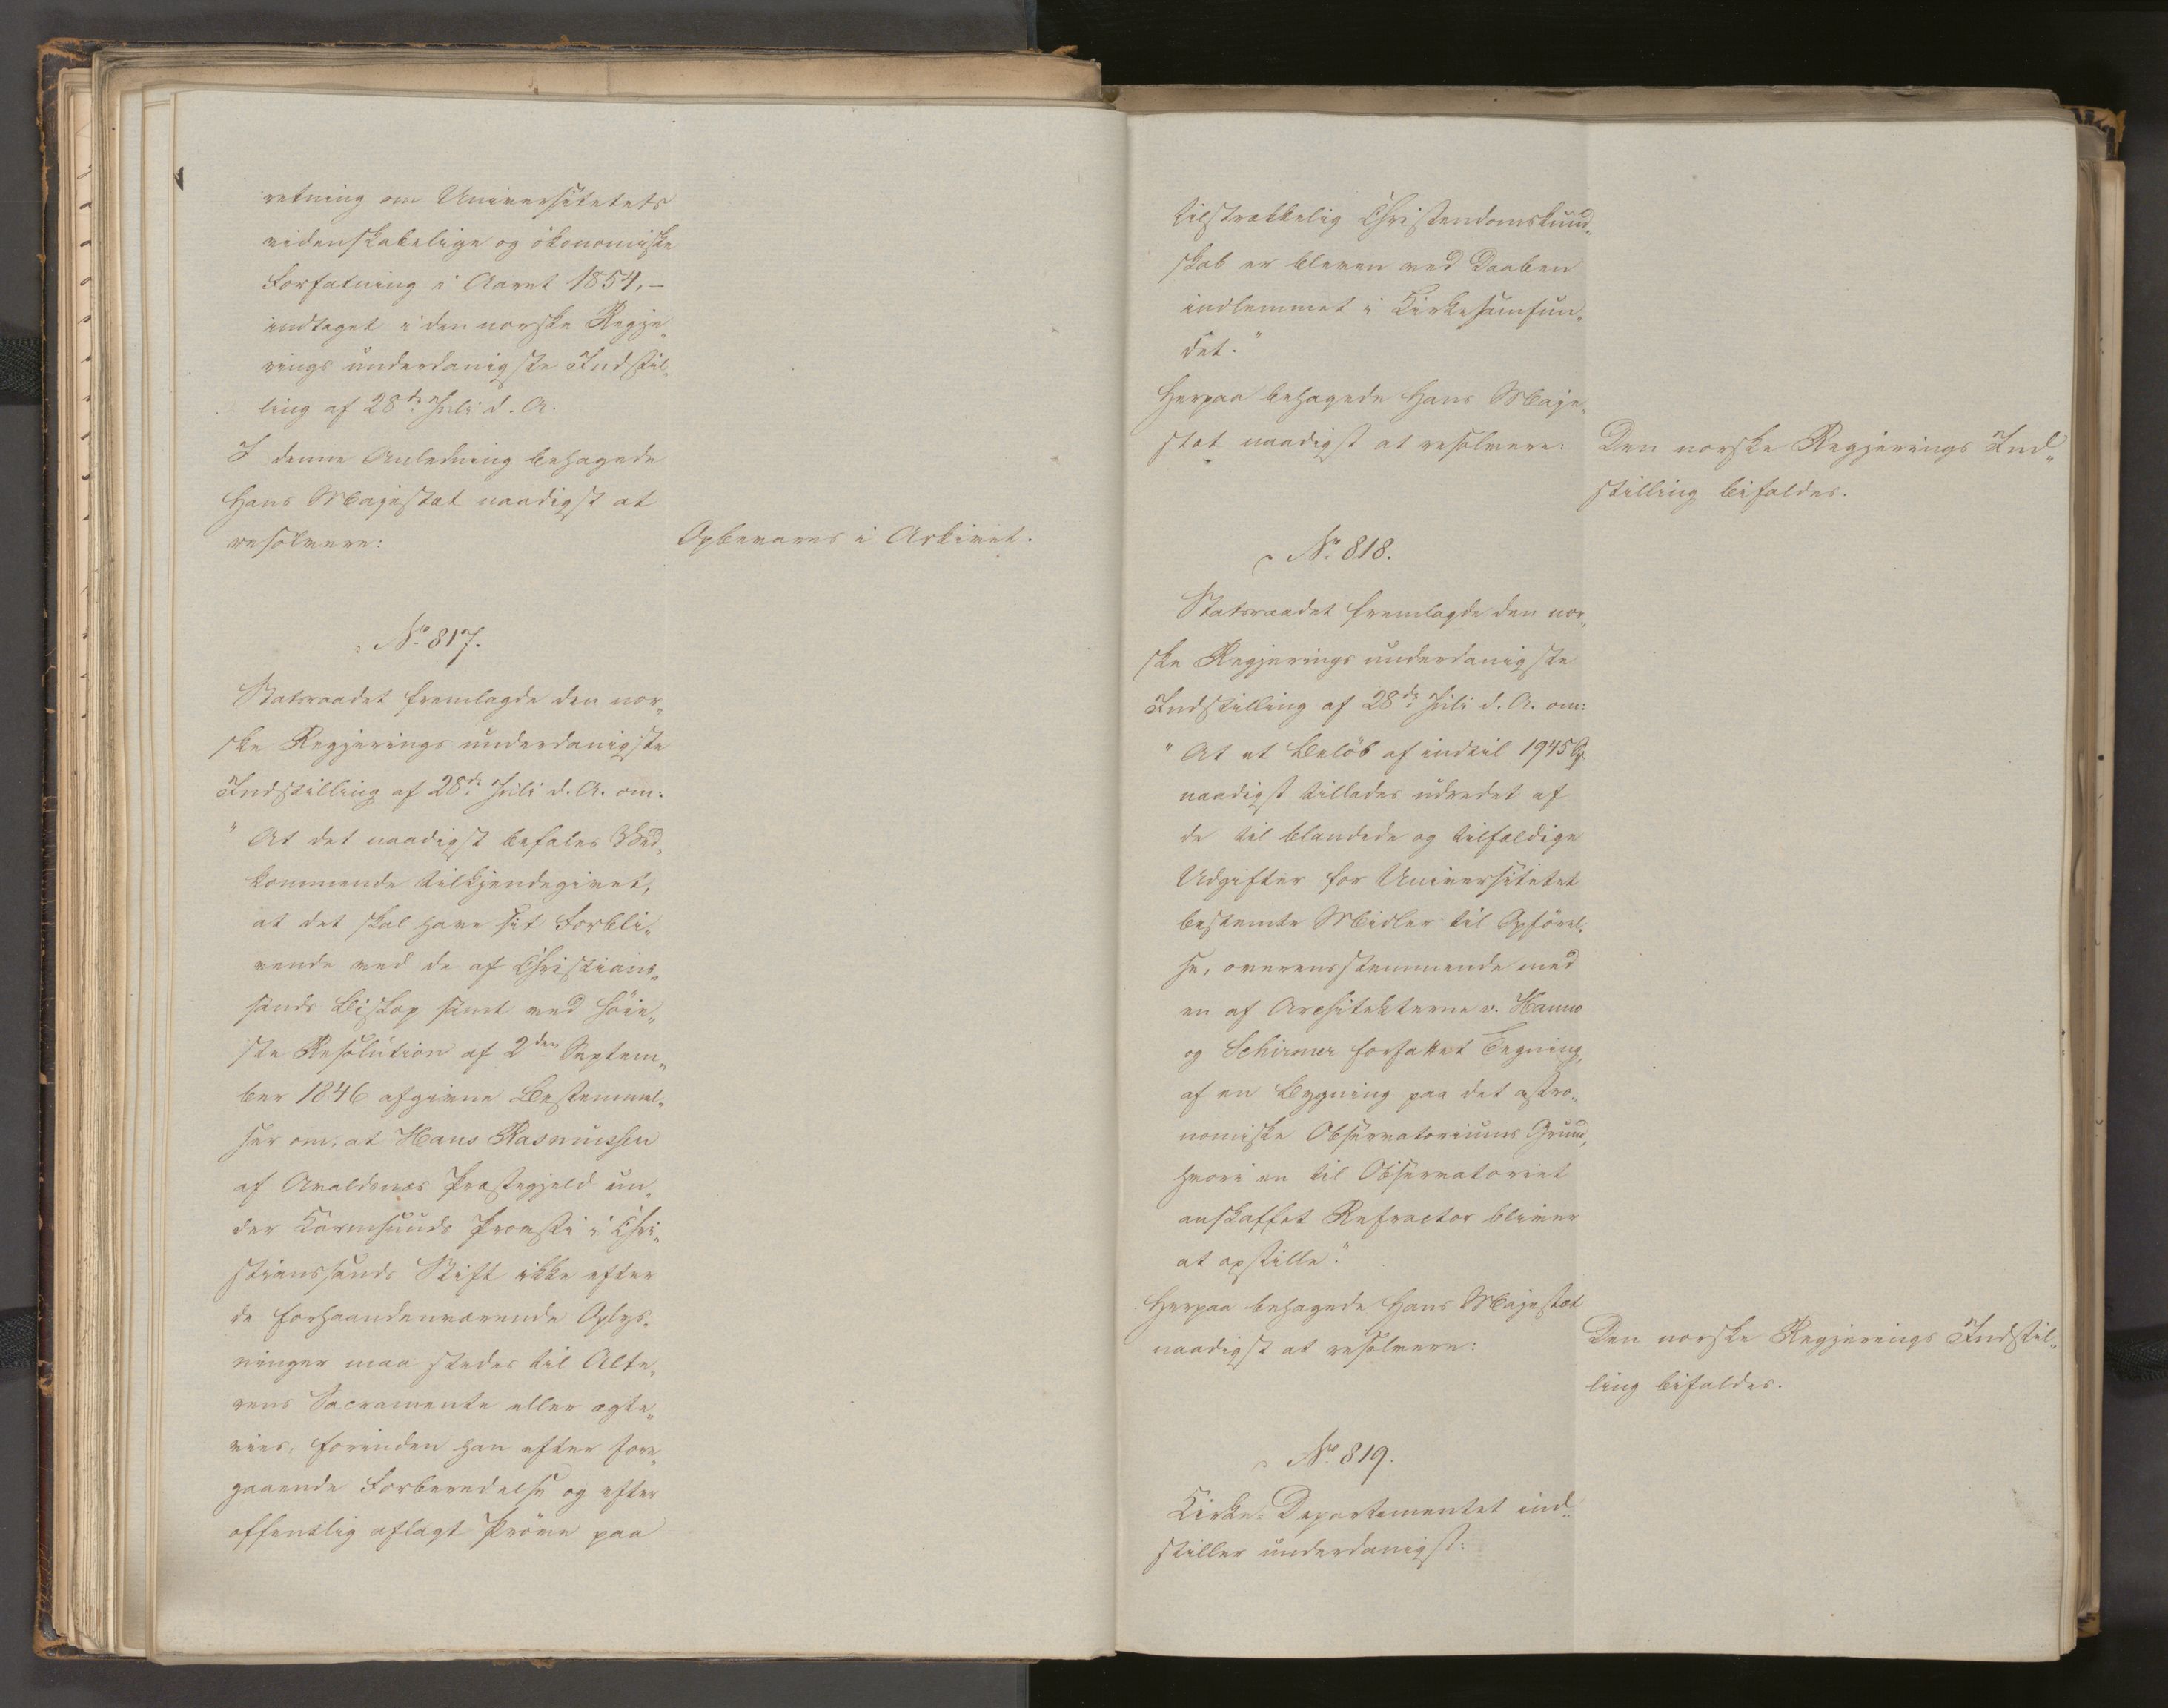 retning om Universitetets
videnskabelige og økonomiske
Forfatning i Aaret 1854, –
indtaget i den norske Regje„
rings underdanigste Indstil„
ling af 28de Juli d. A.
I denne Anledning behagede
Hans Majestæt naadigst at
resolvere:
Opbevares i Arkivet.
No 817.
Statsraadet fremlagde den nor„
ske Regjerings underdanigste
Indstilling af 28de Juli d. A. om:
"At det naadigst befales Ved„
kommende tilkjendegivet,
at det skal have sit Forbli„
vende ved de af Christians„
sands Biskop samt ved höie„
ste Resolution af 2den Septem„
ber 1846 afgivne Bestemmel„
ser om, at Hans Rasmussen
af Avaldsnæs Præstegjeld un„
der Karmsunds Provsti i Chri„
stianssands Stift ikke efter
de forhaandenværende Oplys„
ninger maa stedes til Alte„
rens Sacramente eller ægte„
vies, forinden han efter fore„
gaaende Forberedelse og efter
offentlig aflagt Pröve paa
tilstrækkelig Christendomskund„
skab er bleven ved Daaben
indlemmet i Kirkesamfun„
det."
Herpaa behagede Hans Maje„
stæt naadigst at resolvere:
Den norske Regjerings Ind„
stilling bifaldes.
No. 818.
Statsraadet fremlagde den nor„
ske Regjerings underdanigste
Indstilling af 28de Juli d. A. om:
"At et Belöb af indtil 1945 Spd
naadigst tillades udredet af
de til blandede og tilfældige
Udgifter for Universitetet
bestemte Midler til Opförel„
se, overensstemmende med
en af Architekterne v. Hanno
og Schirmer forfattet Tegning,
af en Bygning paa det astro„
nomiske Observatoriums Grund,
hvori en til Observatoriet
anskaffet Refractor bliver
at opstille."
Herpaa behagede Hans Majestæt
naadigst at resolvere:
Den norske Regjerings Indstil„
ling bifaldes.
No. 819.
Kirke-Departementet ind„
stiller underdanigst: